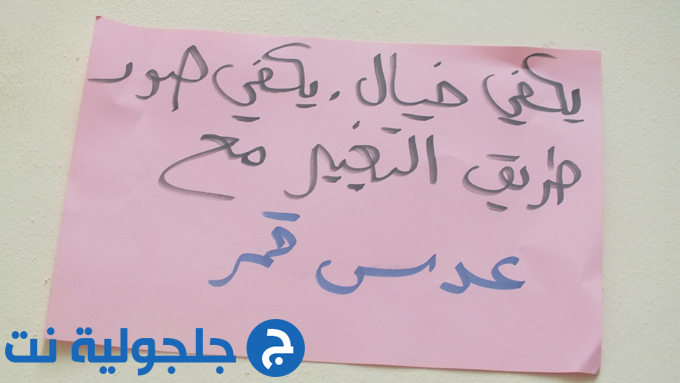 يكفي خيال. يكفي صور
طريق التغيير مع
عدس قمر
جلجولية نت